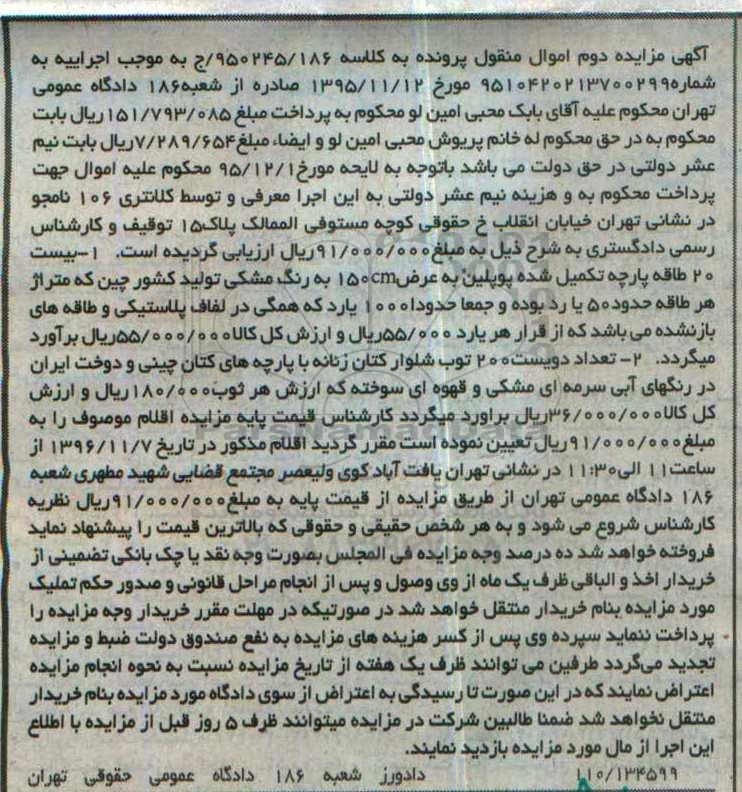 آگهی مزایده دوم اموال منقول پرونده به کلاسه ۹۵۰۲۴۵/۱۸۶/ج به موجب اجراییه به
شماره۹۵۱۰۴۲۰۲۱۳۷۰۰۲۹۹ مورخ ۱۳۹۵/۱۱/۱۲ صادره از شعبه۱۸۶ دادگاه عمومی
تهران محکوم علیه آقای بابک محبی امین لو محکوم به پرداخت مبلغ ۱۵۱/۷۹۳/۰۸۵ریال بابت
محکوم به در حق محکوم له خانم پریوش محبی امین لو و ایضاء مبلغ۷/۲۸۹/۶۵۴ریال بابت نیم
عشر دولتی در حق دولت می باشد باتوجه به لایحه مورخ۹۵/۱۲/۱ محکوم علیه اموال جهت
پرداخت محکوم به و هزینه نیم عشر دولتی به این اجرا معرفی و توسط کلانتری ۱۰۶ نامجو
در نشانی تهران خیابان انقلاب خ حقوقی کوچه مستوفی الممالک پلاک۱۵ توقیف و کارشناس
رسمی دادگستری به شرح ذیل به مبلغ۹۱/۰۰۰/۰۰۰ریال ارزیابی گردیده است. ۱-بیست
۲۰ طاقه پارچه تکمیل شده پوپلین به عرض۱۵۰cm به رنگ مشکی تولید کشور چین که متراژ
هر طاقه حدود۵۰ یا رد بوده و جمعا حدودا۱۰۰۰ یارد که همگی در لفاف پلاستیکی و طاقه های
بازنشده می باشد که از قرار هر یارد ۵۵/۰۰۰ریال و ارزش کل کالا۵۵/۰۰۰/۰۰۰ریال برآورد
میگردد. ۲- تعداد دویست۲۰۰ ثوب شلوار کتان زنانه با پارچه های کتان چینی و دوخت ایران
در رنگهای آبی سرمه ای مشکی و قهوه ای سوخته که ارزش هر ثوب۱۸۰/۰۰۰ریال و ارزش
کل کالا۳۶/۰۰۰/۰۰۰ریال براورد میگردد کارشناس قیمت پایه مزایده اقلام موصوف را به
مبلغ۹۱/۰۰۰/۰۰۰ریال تعیین نموده است مقرر گردید اقلام مذکور در تاریخ ۱۳۹۶/۱۱/۷ از
ساعت۱۱ الی۱۱:۳۰ در نشانی تهران یافت آباد کوی ولیعصر مجتمع قضایی شهید مطهری شعبه
۱۸۶ دادگاه عمومی تهران از طریق مزایده از قیمت پایه به مبلغ۹۱/۰۰۰/۰۰۰ریال نظریه
کارشناس شروع می شود و به هر شخص حقیقی و حقوقی که بالاترین قیمت را پیشنهاد نماید
فروخته خواهد شد ده درصد وجه مزایده فی المجلس بصورت وجه نقد یا چک بانکی تضمینی از
خریدار اخذ و الباقی ظرف یک ماه از وی وصول و پس از انجام مراحل قانونی و صدور حکم تملیک
مورد مزایده بنام خریدار منتقل خواهد شد در صورتیکه در مهلت مقرر خریدار وجه مزایده را
پرداخت ننماید سپرده وی پس از کسر هزینه های مزایده به نفع صندوق دولت ضبط و مزایده
تجدید می‌گردد طرفین می توانند ظرف یک هفته از تاریخ مزایده نسبت به نحوه انجام مزایده
اعتراض نمایند که در این صورت تا رسیدگی به اعتراض از سوی دادگاه مورد مزایده بنام خریدار
منتقل نخواهد شد ضمنا طالبین شرکت در مزایده میتوانند ظرف ۵ روز قبل از مزایده با اطلاع
این اجرا از مال مورد مزایده بازدید نمایند.
۱۱۰/۱۳۴۵۹۹ دادورز شعبه ۱۸۶ دادگاه عمومی حقوقی تهران